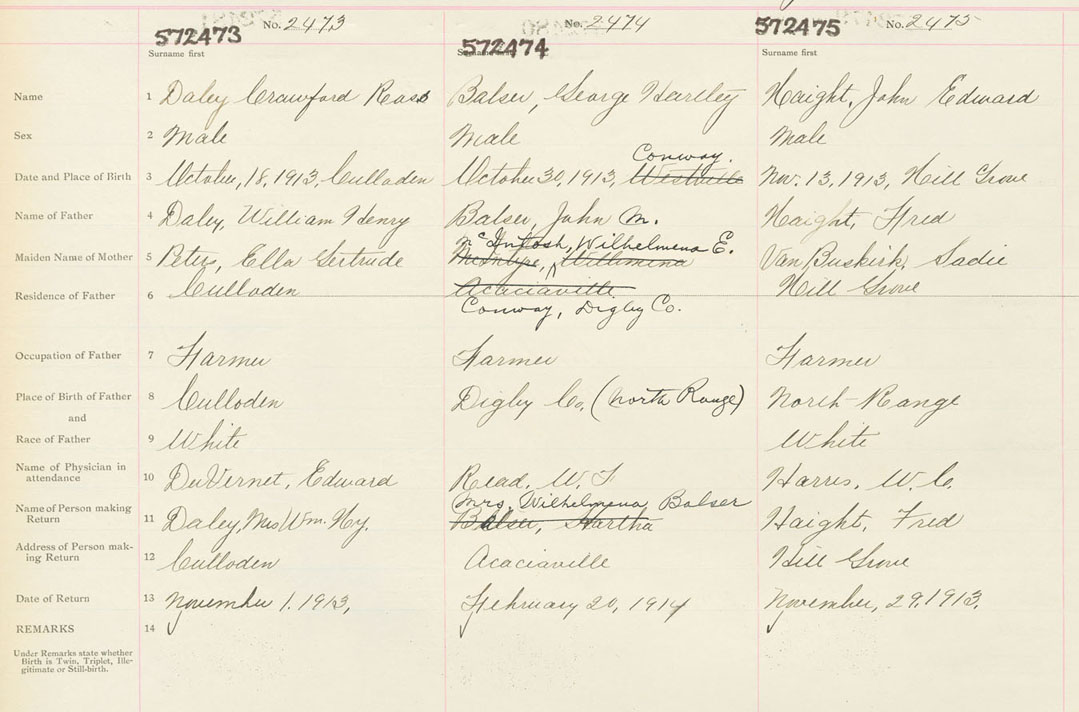 No. 2473 No. 2474 No. 2475
572473 572474 572475
Surname first Surname first Surname first
Name 1 Daley Crawford Ross Balser, George Hartley Haight, John Edward
Sex 2 Male Male Male
Conway.
Date and Place of Birth 3 October, 18, 1913, Culloden October 30, 1913, Westville Nov. 13, 1913, Hill Grove
Name of Father 4 Daley, William Henry Balser, John M. Haight, Fred
McIntosh, Wilhelmena E.
Maiden Name of Mother 5 Peters, Ella Gertrude McIntyre, Willimina Van Buskirk, Sadie
Residence of Father 6 Culloden Acaciaville Hill Grove
Conway, Digby Co.
Occupation of Father 7 Farmer Farmer Farmer
Place of Birth of Father 8 Culloden Digby Co. (North Range) North Range
and
Race of Father 9 White White
Name of Physician in attendance 10 DuVernet, Edward Read, W. F Harris, W. C.
Mrs. Wilhelmena Balser
Name of Person making Return 11 Daley, Mrs Wm. Hy. Balser, Hartha Haight, Fred
Address of Person mak-
ing Return 12 Culloden Acaciaville Hill Grove
Date of Return 13 November 1. 1913, February 20, 1914 November, 29, 1913.
REMARKS 14
Under Remarks state whether
Birth is Twin, Triplet, Ille-
gitimate or Still-birth.